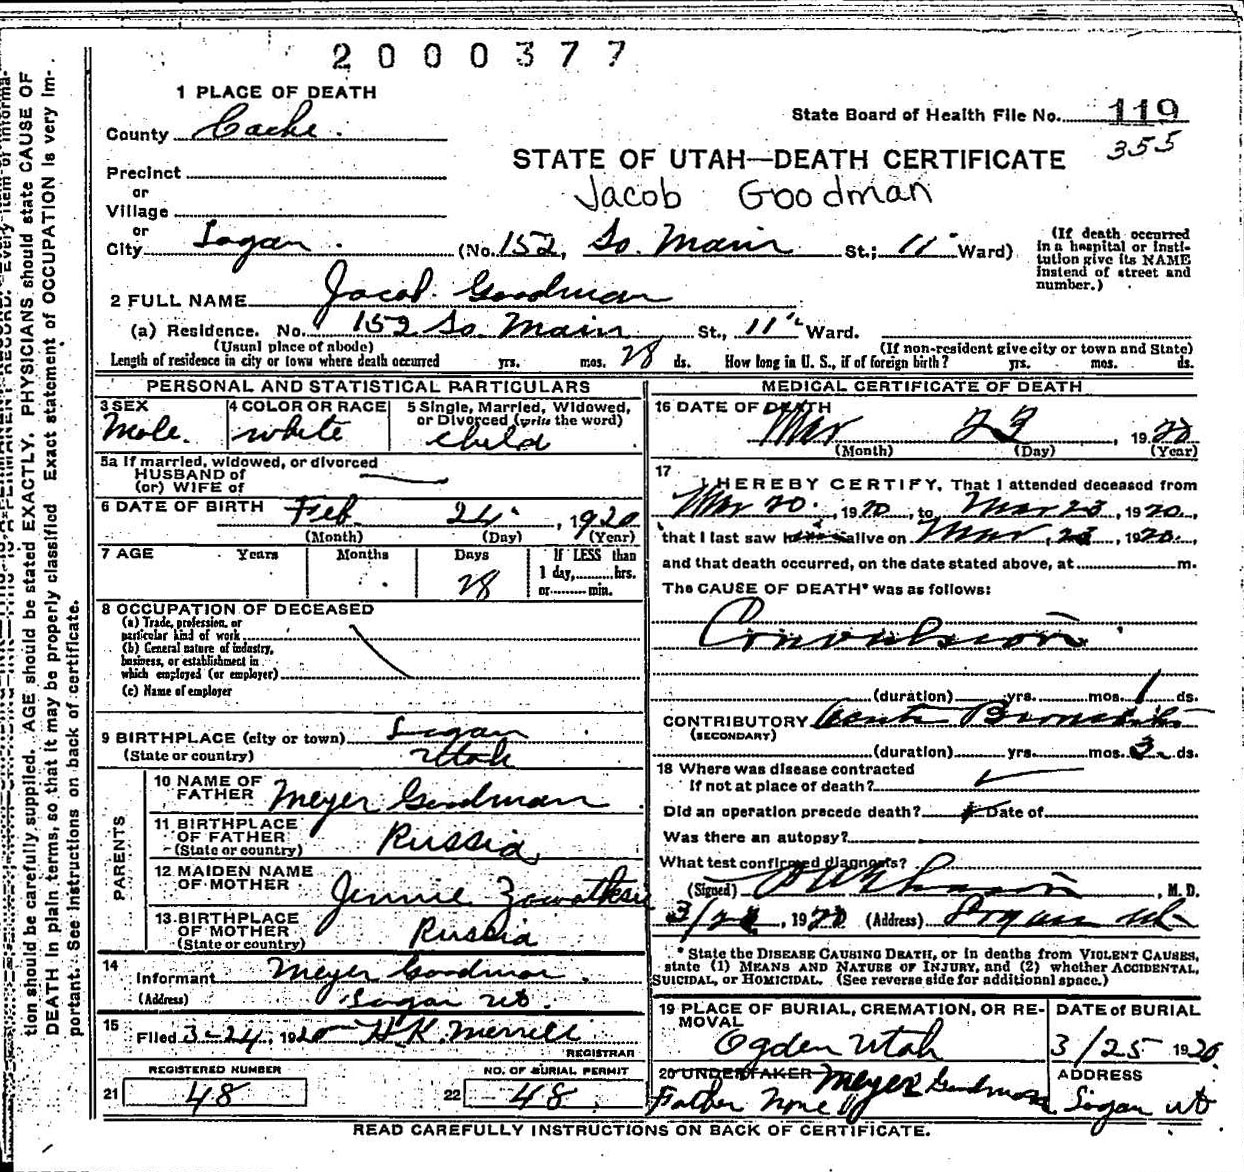 2000377
1 PLACE OF DEATH
State Board of Health File No. 119
355
County Cache.
STATE OF UTAH—DEATH CERTIFICATE
Precinct
Jacob Goodman
or
Village
or
City Logan. (No. 152, So. Main St.; 11" Ward)
(If death occurred in a hospital or insti-
tution give its NAME
instead of street and
number.)
2 FULL NAME Jacob Goodman
(a) Residence. No. 152 So. Main St., 11" Ward.
(Usual place of abode) (If non-resident give city or town and State)
Length of residence in city or town where death occurred yrs. mos. 28 ds. How long in U. S., if of foreign birth? yrs. mos. ds.
PERSONAL AND STATISTICAL PARTICULARS
3 SEX
Male.
4 COLOR OR RACE
white
5 Single, Married, Widowed,
or Divorced (write the word)
child
5a If married, widowed, or divorced
HUSBAND of
(or) WIFE of
6 DATE OF BIRTH Feb 24, 1920
(Month) (Day) (Year)
7 AGE Years Months Days If LESS than
28 1 day, hrs.
or min.
8 OCCUPATION OF DECEASED
(a) Trade, profession, or
particular kind of work
(b) General nature of industry,
business, or establishment in
which employed (or employer)
(c) Name of employer
9 BIRTHPLACE (city or town) Logan
(State or country) Utah
PARENTS
10 NAME OF
FATHER Meyer Goodman
11 BIRTHPLACE
OF FATHER
(State or country) Russia
12 MAIDEN NAME
OF MOTHER Jennie
13 BIRTHPLACE
OF MOTHER
(State or country) Russia
14
Informant Meyer Goodman.
(Address) Logan Ut.
15
Filed 3-24, 1920 H.K. Merrill
REGISTRAR
REGISTERED NUMBER
21 48
NO. OF BURIAL PERMIT
22 48
MEDICAL CERTIFICATE OF DEATH
16 DATE OF DEATH
Mar 23, 1920
(Month) (Day) (Year)
17
I HEREBY CERTIFY, That I attended deceased from
Mar 20, 1920, to Mar 23, 1920,
that I last saw h alive on Mar, 23, 1920,
and that death occurred, on the date stated above, at m.
The CAUSE OF DEATH* was as follows:
Convulsion
(duration) yrs. mos. 1 ds.
CONTRIBUTORY Acute Bronchitis
(SECONDARY)
(duration) yrs. mos. 3 ds.
18 Where was disease contracted
If not at place of death?
Did an operation precede death? Date of
Was there an autopsy?
What test confirmed diagnosis?
(Signed) , M. D.
3/24, 1920 (Address) Logan Ut
* State the DISEASE CAUSING DEATH, or in deaths from VIOLENT CAUSES,
state (1) MEANS AND NATURE OF INJURY, and (2) whether ACCIDENTAL,
SUICIDAL, or HOMICIDAL. (See reverse side for additional space.)
19 PLACE OF BURIAL, CREMATION, OR RE-
MOVAL
Ogden Utah
DATE of BURIAL
3/25 1920
20 UNDERTAKER Meyer Goodman
Father None
ADDRESS
Logan Ut
READ CAREFULLY INSTRUCTIONS ON BACK OF CERTIFICATE.
tion should be carefully supplied. AGE should be stated EXACTLY. PHYSICIANS should state CAUSE OF
DEATH in plain terms, so that it may be properly classified. Exact statement of OCCUPATION is very im-
portant. See instructions on back of certificate.